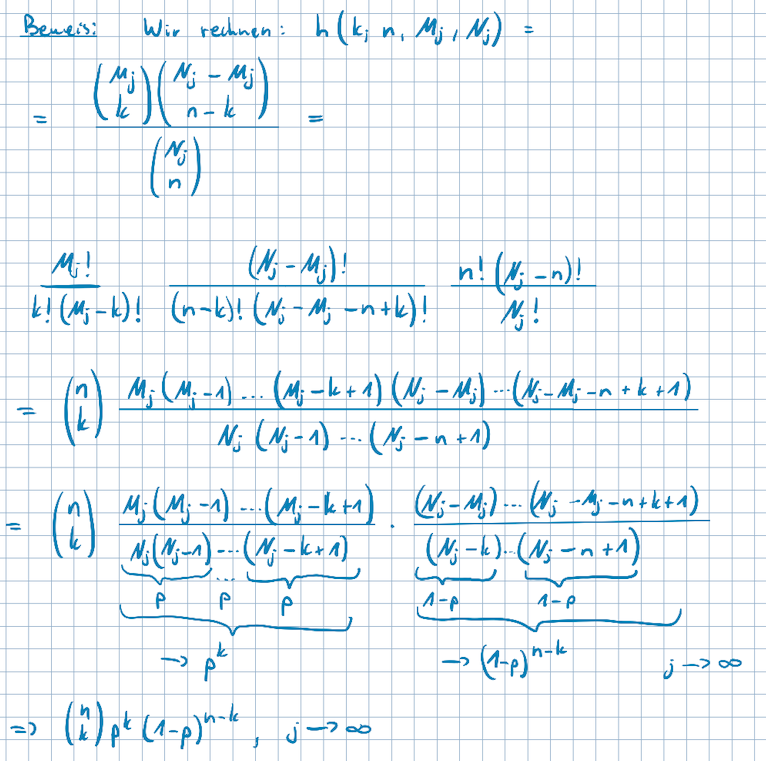 Beweis: Wir rechnen: h(k; n, M_j, N_j) =
= \frac{\binom{M_j}{k}\binom{N_j - M_j}{n-k}}{\binom{N_j}{n}} =
\frac{M_j!}{k!(M_j-k)!} \frac{(N_j-M_j)!}{(n-k)!(N_j-M_j-n+k)!} \frac{n!(N_j-n)!}{N_j!}
= \binom{n}{k} \frac{M_j(M_j-1)...(M_j-k+1)(N_j-M_j)...(N_j-M_j-n+k+1)}{N_j(N_j-1)...(N_j-n+1)}
= \binom{n}{k} \frac{M_j(M_j-1)...(M_j-k+1)}{N_j(N_j-1)...(N_j-k+1)} · \frac{(N_j-M_j)...(N_j-M_j-n+k+1)}{(N_j-k)..(N_j-n+1)}
p ... p p 1-p 1-p
→ p^k → (1-p)^{n-k} j → ∞
=> \binom{n}{k} p^k (1-p)^{n-k}, j → ∞